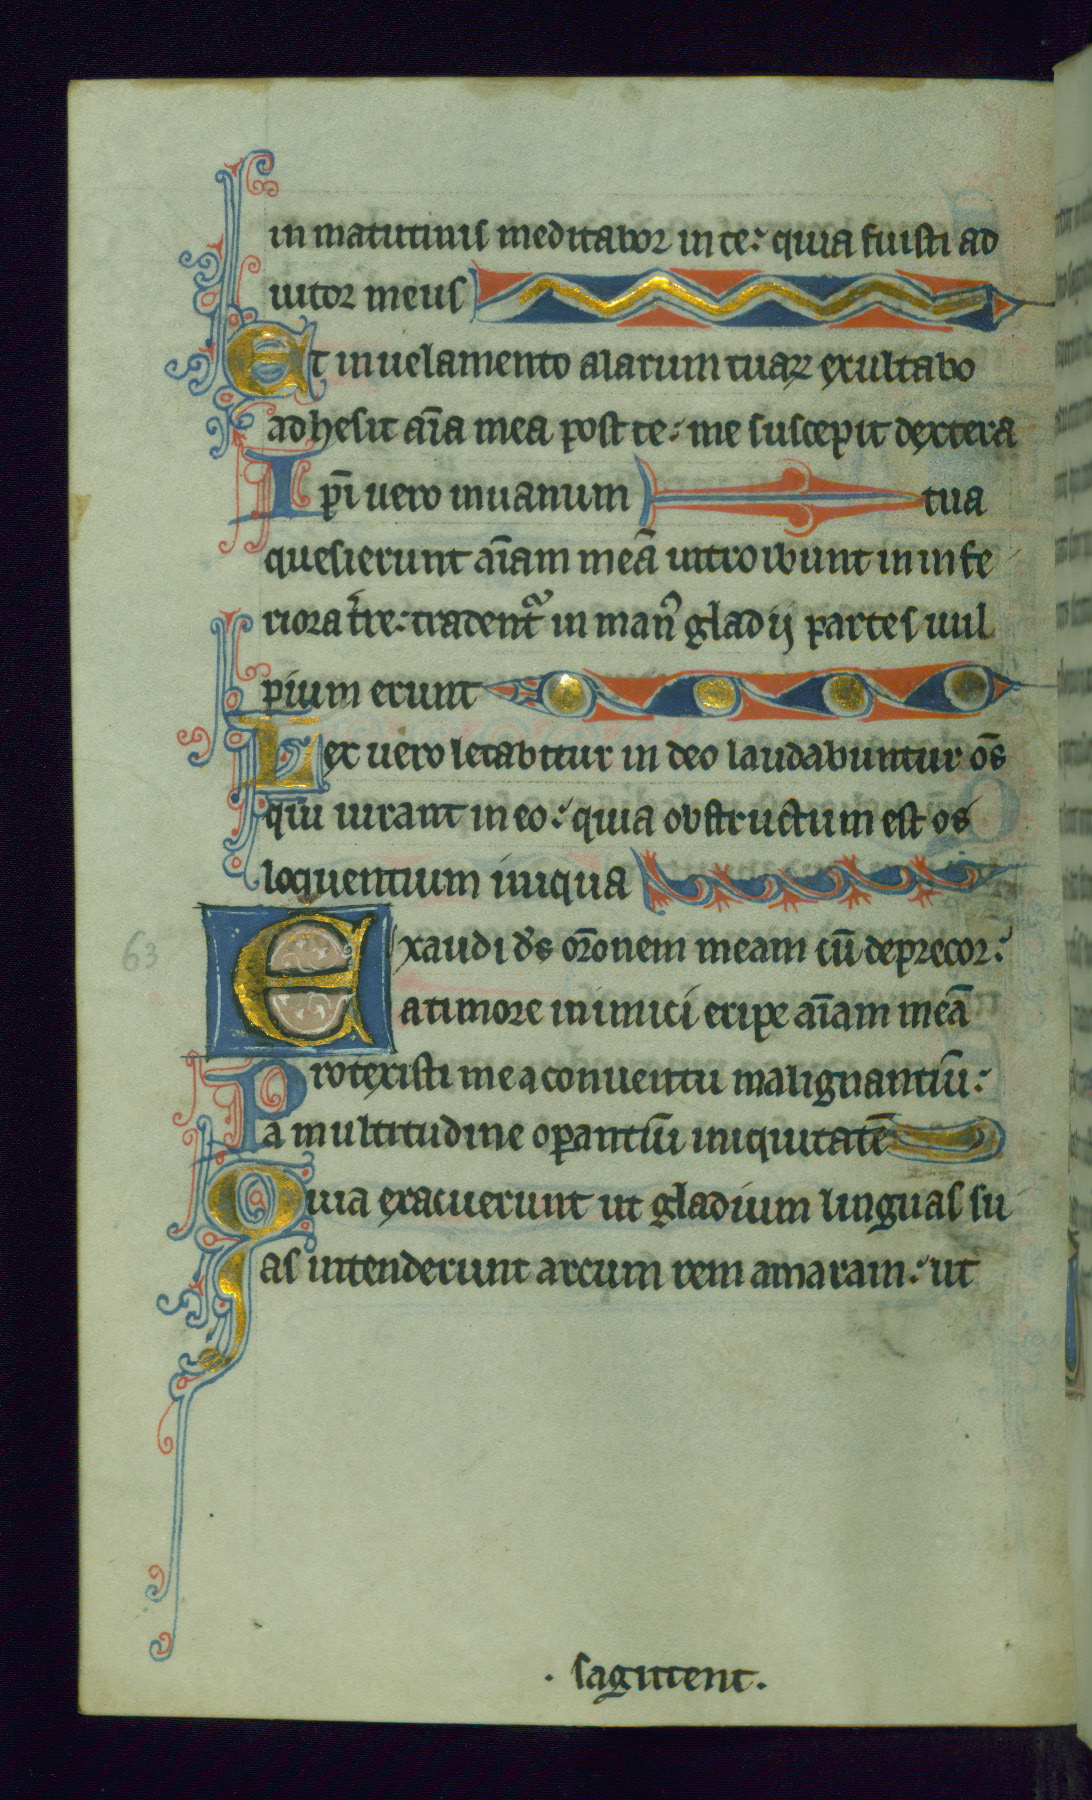 in matutinis meditabor in te: quia fuisti ad
iutor meus
Et in uelamento alarum tuaꝝ exultabo
adhesit aīa mea post te: me suscepit dextera
Ipsi uero in uanum tua
quesierunt aīam meā introibunt in infe
riora t̄re: tradent᷑ in man᷒ gladij partes uul
pium erunt
Rex uero letabitur in deo laudabuntur om̄s
qui iurant in eo: quia obstructum est os
loquentium iniqua
63
Exaudi ds̄ or̄onem meam cū deprecor:
a timore inimici eripe aīam meā
Protexisti me a conuentu malignantiū:
a multitudine oꝑantiū iniquitatē
Quia exacuerunt ut gladium linguas su
as intenderunt arcum rem amaram: ut
. sagittent.